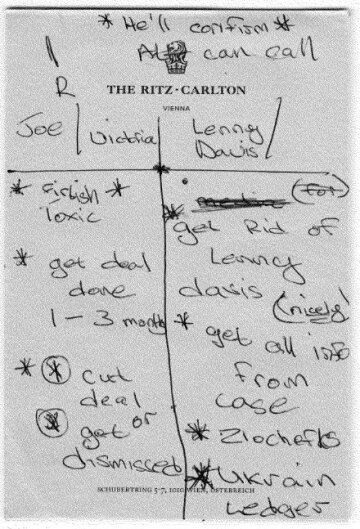 * He'll confirm *
can call
R
THE RITZ-CARLTON
VIENNA
Joe | Victoria | Lenny Davis
* Firtish *
toxic
* get deal
done
1 – 3 month
* * cut
deal
or
* get
dismissed
(for)
* get Rid of
Lenny
davis
(nicely)
* get all info
from
case
* Zlochefks
* Ukrain
Ledger
SCHUBERTRING 5-7, 1010 WIEN, ÖSTERREICH